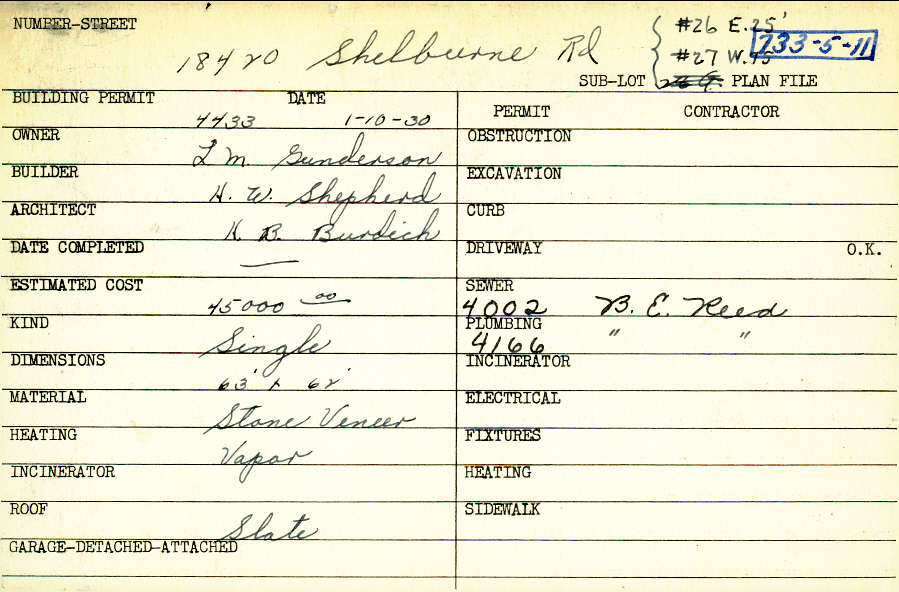 NUMBER-STREET
18420 Shelburne Rd
#26 E.25'
#27 W.75
733-5-11
SUB-LOT PLAN FILE
BUILDING PERMIT DATE
4433 1-10-30
OWNER
L M. Gunderson
BUILDER
H. W. Shepherd
ARCHITECT
H. B. Burdich
DATE COMPLETED
—
ESTIMATED COST
45000 00
KIND
Single
DIMENSIONS
63' x 62'
MATERIAL
Stone Veneer
HEATING
Vapor
INCINERATOR
ROOF
Slate
GARAGE-DETACHED-ATTACHED
PERMIT CONTRACTOR
OBSTRUCTION
EXCAVATION
CURB
DRIVEWAY O.K.
SEWER
4002 B. E. Reed
PLUMBING
4166 " "
INCINERATOR
ELECTRICAL
FIXTURES
HEATING
SIDEWALK